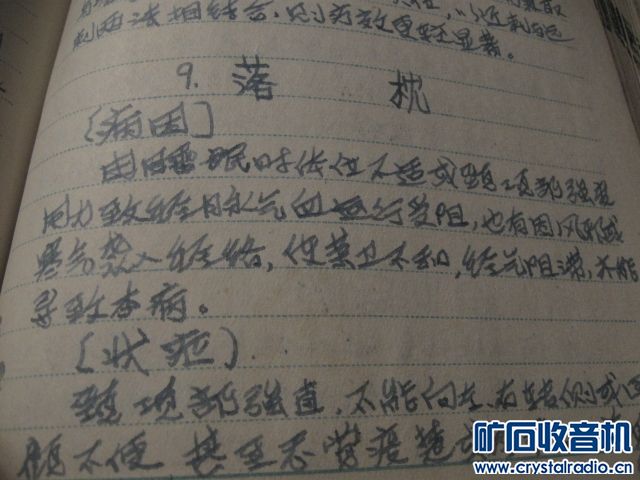 刺两法相结合,则疗效更显著。
9. 落 枕
〔病因〕
由因 眠时体位不适或颈项部强
用力致经脉气血运行受阻,也有因风邪或
寒气袭入经络,使营卫不和,经气阻滞,亦能
导致本病。
〔状症〕
颈项部强直,不能向左、右转侧或回
顾不便,甚至
矿石收音机
www.crystalradio.cn